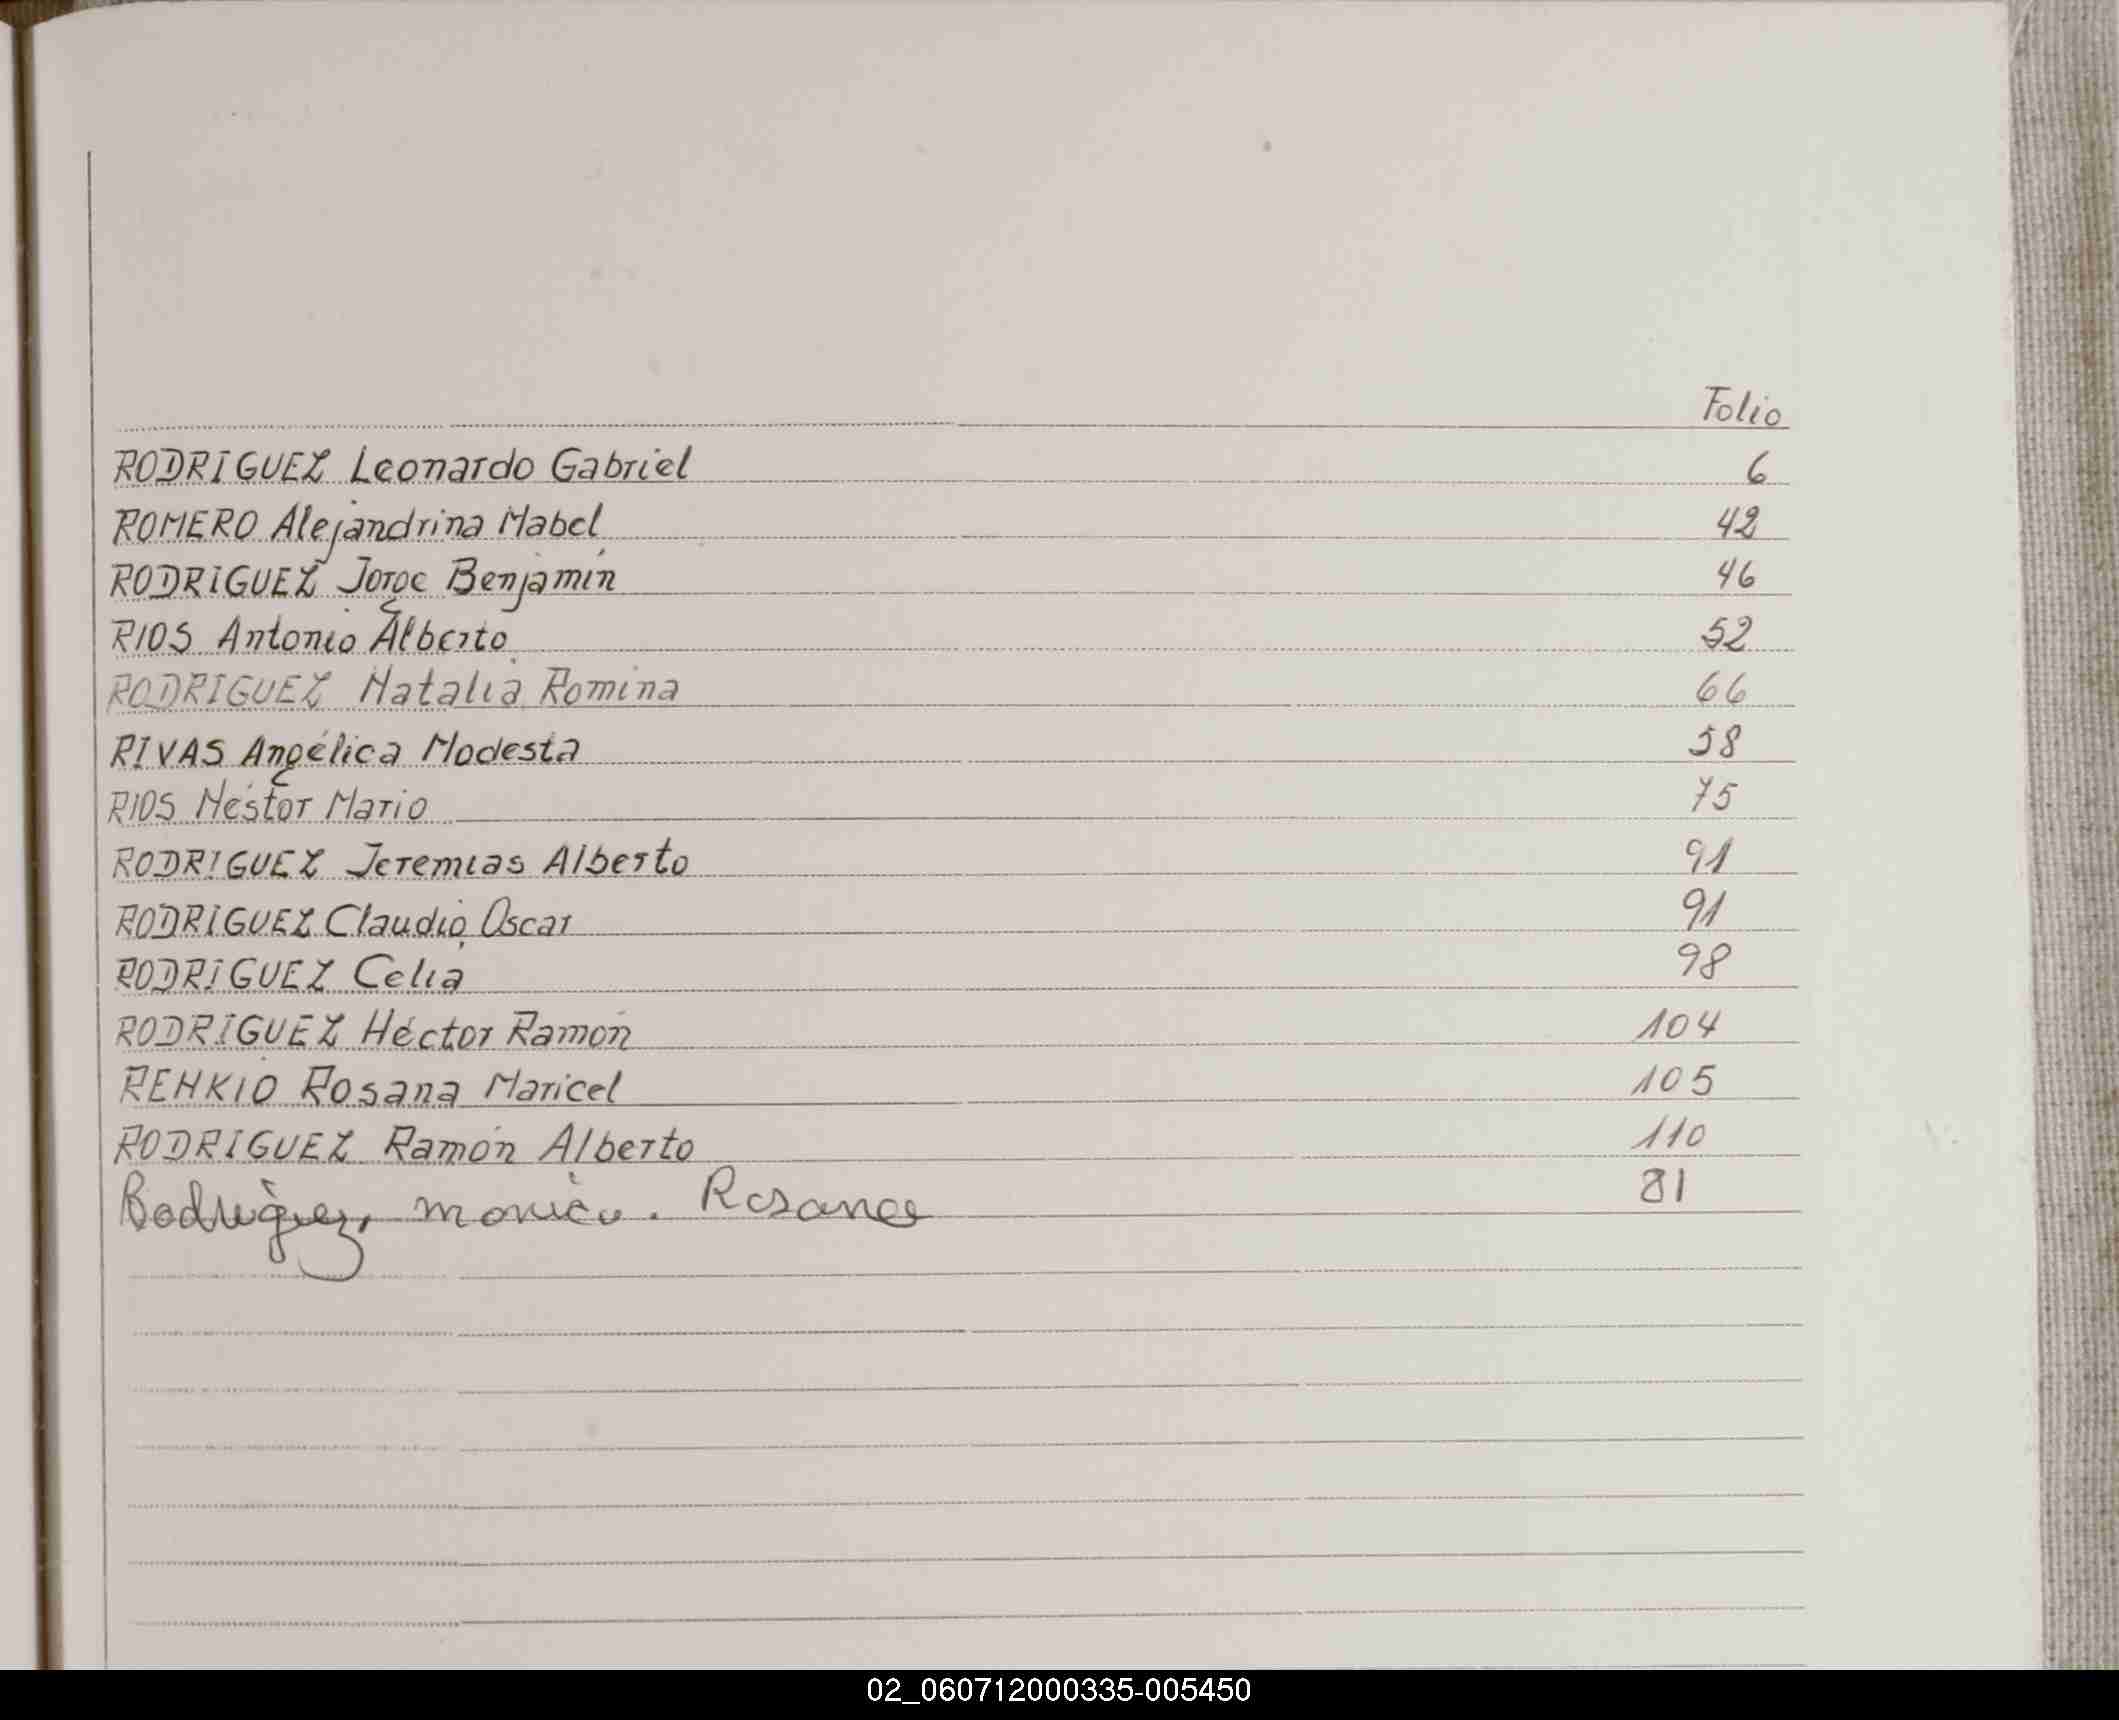 Folio
RODRIGUEZ Leonardo Gabriel 6
ROMERO Alejandrina Mabel 42
RODRIGUEZ Jorge Benjamín 46
RIOS Antonio Alberto 52
RODRIGUEZ Natalia Romina 66
RIVAS Angélica Modesta 58
RIOS Néstor Mario 75
RODRIGUEZ Jeremias Alberto 91
RODRIGUEZ Claudio Oscar 91
RODRIGUEZ Celia 98
RODRIGUEZ Héctor Ramón 104
REHKIO Rosana Maricel 105
RODRIGUEZ Ramón Alberto 110
Rodriguez, monica. Rosana 81
02_060712000335-005450